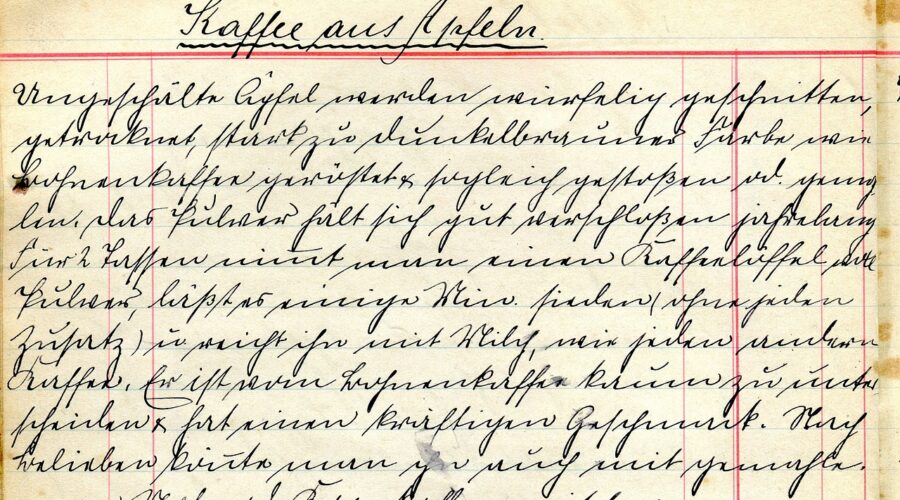 Kaffee aus Äpfeln.
Ungeschälte Äpfel werden würfelig geschnitten,
getrocknet, stark zu dunkelbrauner Farbe wie
Bohnenkaffee geröstet & sogleich gestoßen od. gemah
len. Das Pulver hält sich gut verschloßen jahrelang
Für 2 Tassen nimmt man einen Kaffeelöffel voll
Pulver, läßt es einige Min. sieden (ohne jeden
Zusatz) u reicht ihn mit Milch, wie jeden andern
Kaffee. Er ist vom Bohnenkaffee kaum zu unter
scheiden & hat einen kräftigen Geschmack. Nach
Belieben könnte man ihn auch mit gemahle.